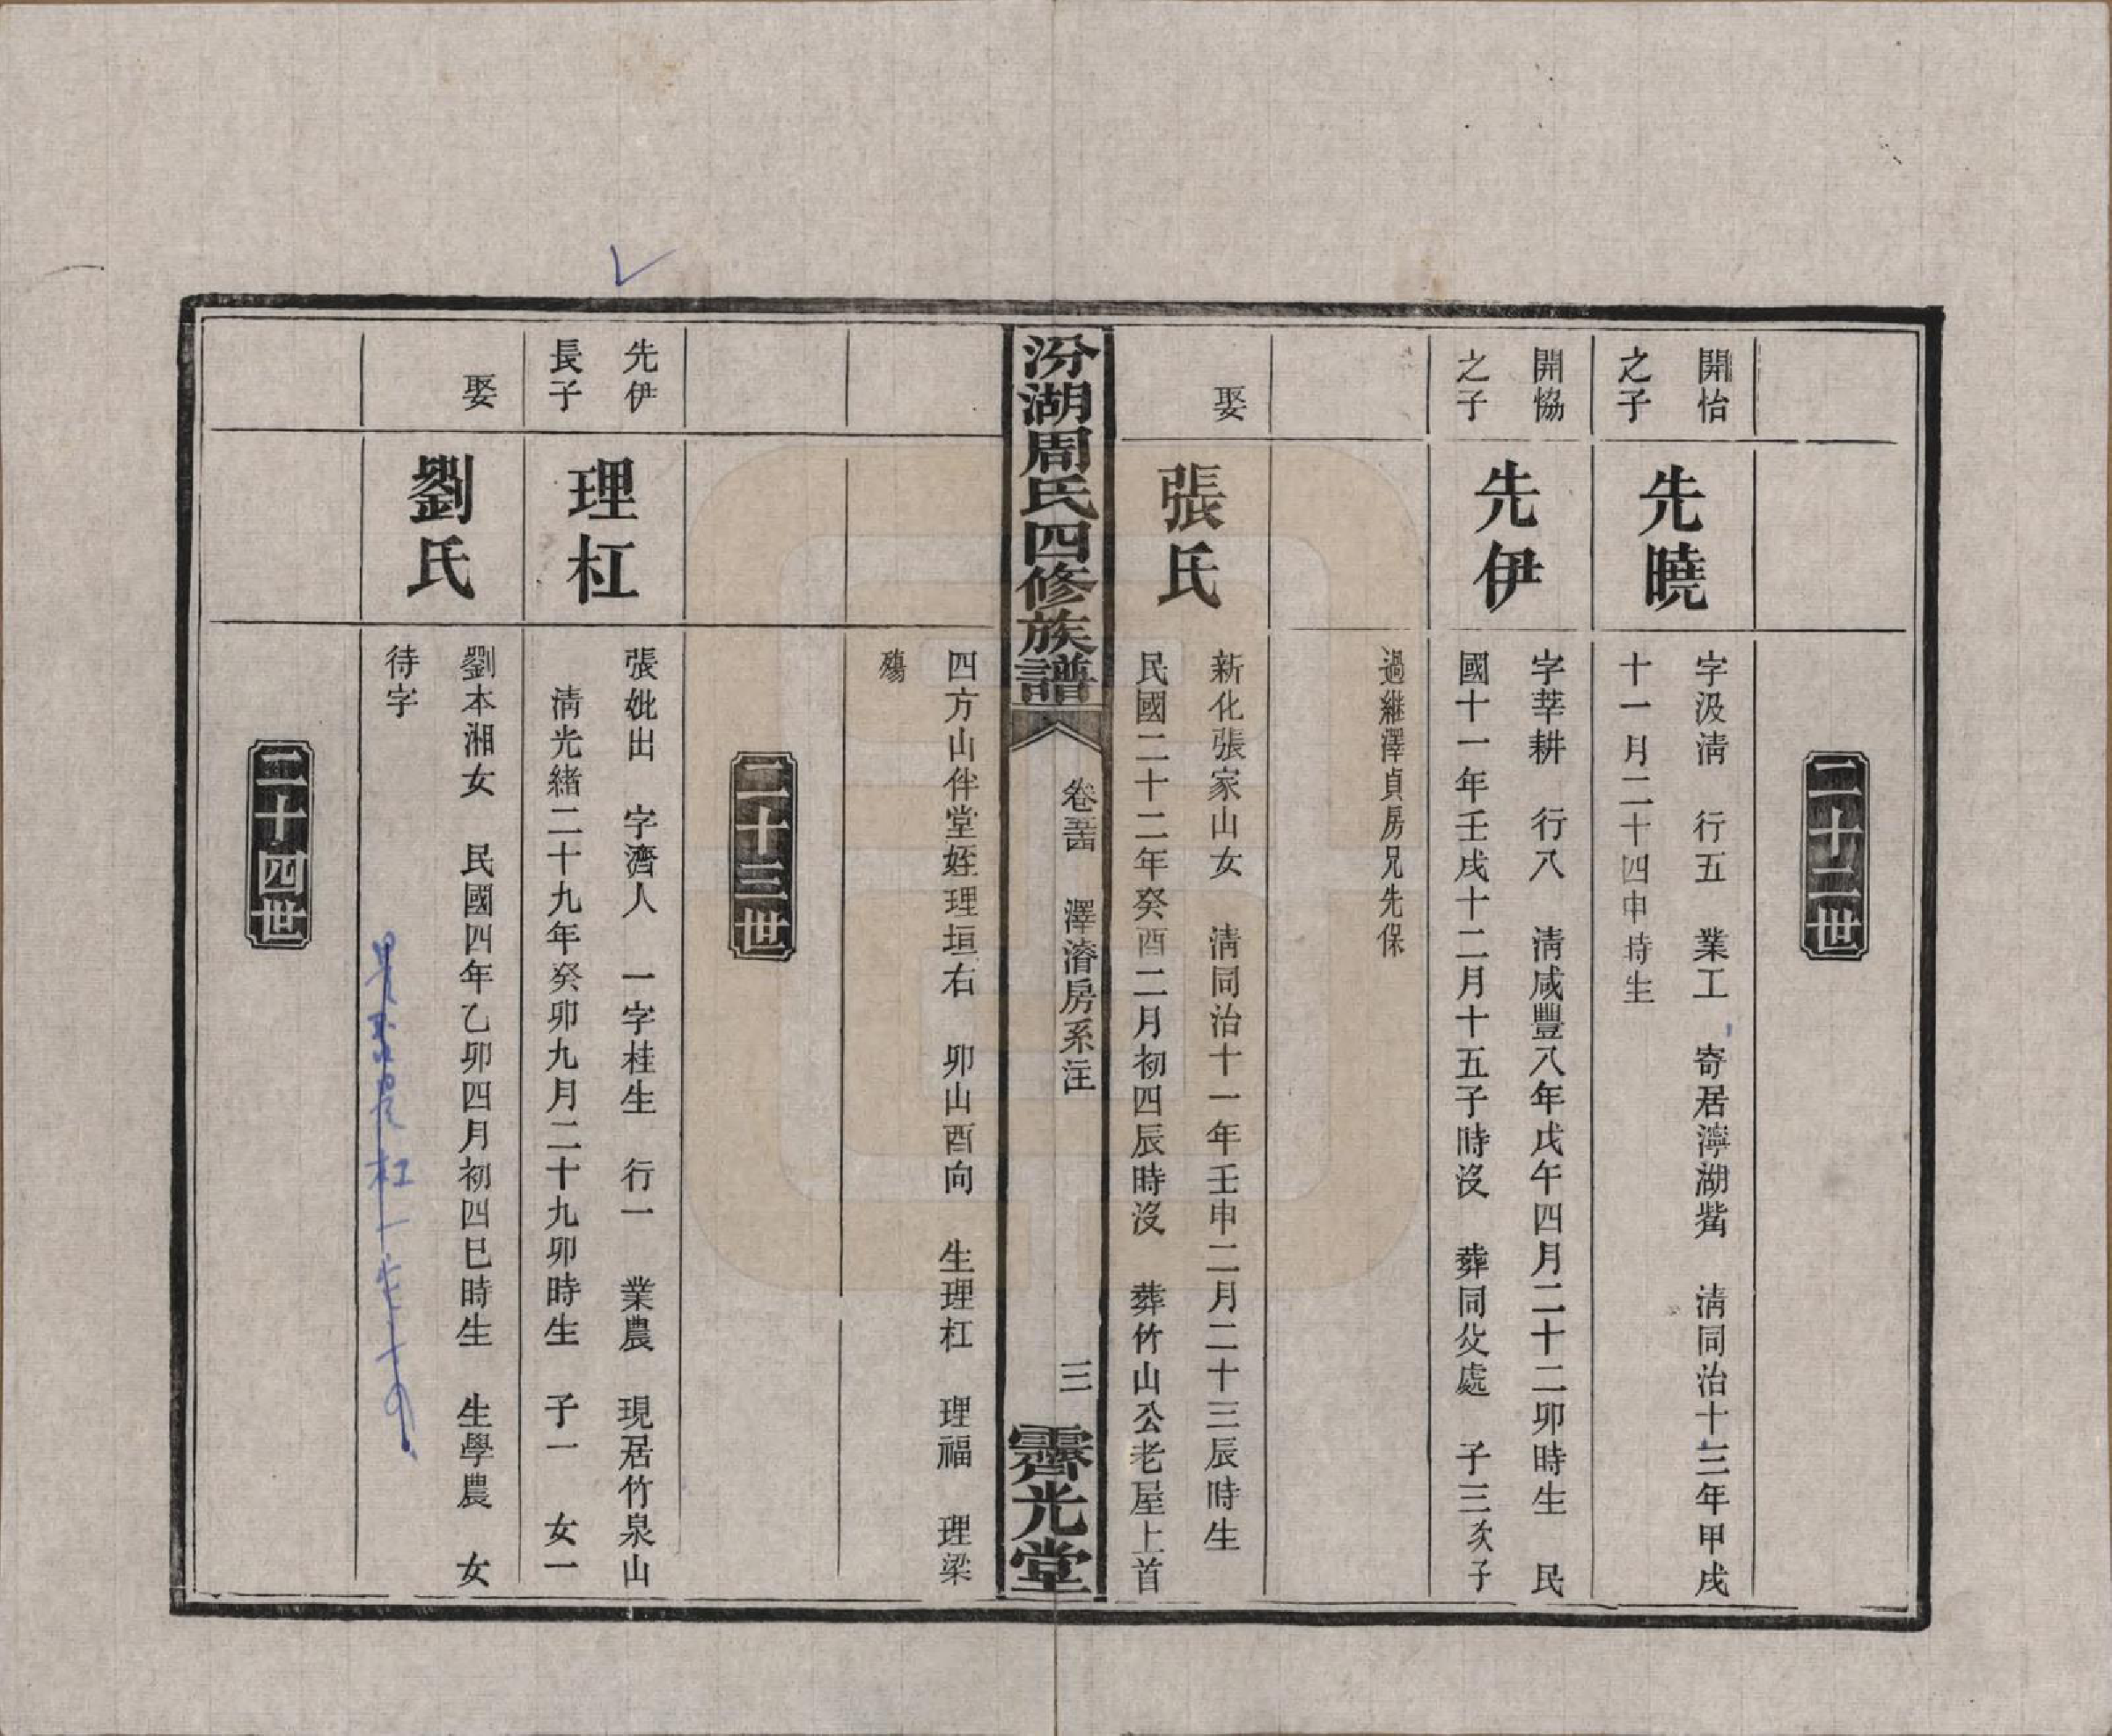 二十二世
開怡
之子
先曉
字汲淸　行五　業工　寄居濘湖觜　淸同治十三年甲戌
十一月二十四申時生
開恊
之子
先伊
字莘耕　行八　淸咸豐八年戊午四月二十二卯時生　民
國十一年壬戌十二月十五子時沒　葬同父處　子三次子
過繼澤貞房兄先保
娶
張氏
新化張家山女　淸同治十一年壬申二月二十三辰時生
民國二十二年癸酉二月初四辰時沒　葬竹山公老屋上首
汾湖周氏四修族譜
卷　澤濬房系注
三
霽光堂
四方山伴堂姪理垣右　卯山酉向　生理杠　理福　理梁
殤
二十三世
先伊
長子
理杠
張妣出　字濟人　一字桂生　行一　業農　現居竹泉山
淸光緒二十九年癸卯九月二十九卯時生　子一　女一
娶
劉氏
劉本湘女　民國四年乙卯四月初四巳時生　生學農　女
待字
二十四世